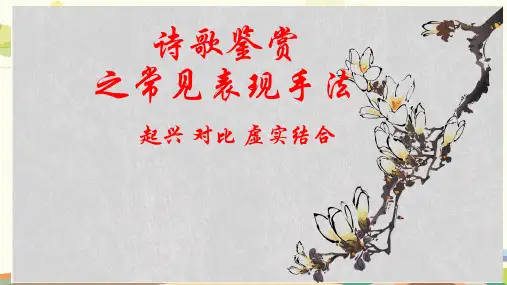 诗歌鉴赏
之常见表现手法
起兴 对比 虚实结合